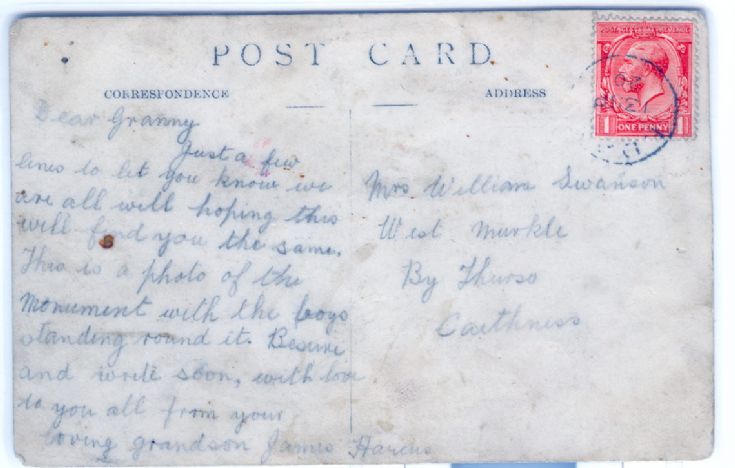 POST CARD
CORRESPONDENCE
ADDRESS
Dear Granny
Just a few
lines to let you know we
are all will hoping this
will find you the same.
This is a photo of the
Monument with the boys
standing round it. Besure
and write soon, with love
to you all from your
loving grandson James Harcus
Mrs William Swanson
West Murkle
By Thurso
Caithness
POSTAGE REVENUE
1 ONE PENNY 1